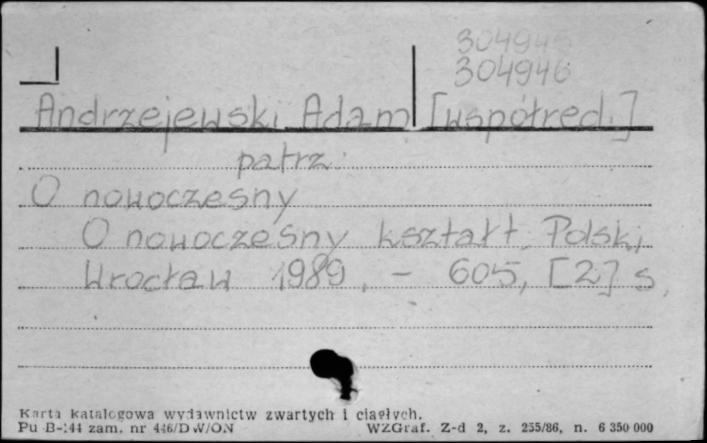 304945
304946
Andrzejewski Adam [współred.]
patrz:
O nowoczesny
O nowoczesny kształt Polski,
Wrocław 1989. - 605, [2] s.
Karta katalogowa wydawnictw zwartych i ciągłych.
Pu B-144 zam. nr 446/DW/ON WZGraf. Z-d 2, z. 255/86, n. 6 350 000